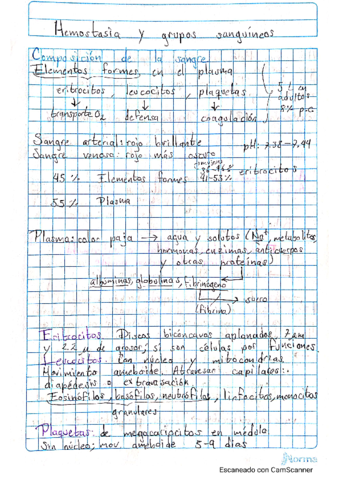 Hemostasia y grupos sanguíneos
Composición de la sangre
Elementos formes en el plasma
eritrocitos, leucocitos, plaquetas
5 L en
adultos
8% p.c
transporte O₂ defensa coagulación
Sangre arterial: rojo brillante pH: 7.38-7.44
Sangre venosa: rojo más oscuro
45 % Elementos formes 41-53% eritrocitos
55 % Plasma
Plasma: color paja → agua y solutos (Na⁺, metabolitos,
hormonas, enzimas, anticuerpos
y otras proteínas)
albúminas, globulinas, fibrinógeno
→ suero
(Fibrina)
Eritrocitos Discos bicóncavos aplanados, 7 μm
y 2.2 μ de grosor, si son células por funciones.
Leucocitos: con núcleo y mitocondrias
Movimiento ameboide. Atraviesan capilares:
diapédesis o extravasación
Eosinófilos, basófilos, neutrófilos, linfocitos, monocitos
granulares
Plaquetas: de megacariocitos en médula
sin núcleo; mov. ameboide 5-9 días
norma
Escaneado con CamScanner